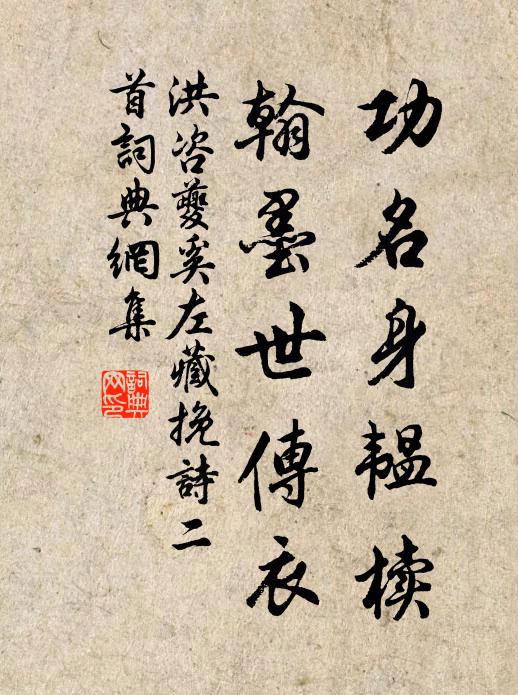 功名身韞櫝
翰墨世傳衣
洪咨夔奚左藏挽詩二
首詞典網集
詞典
网印